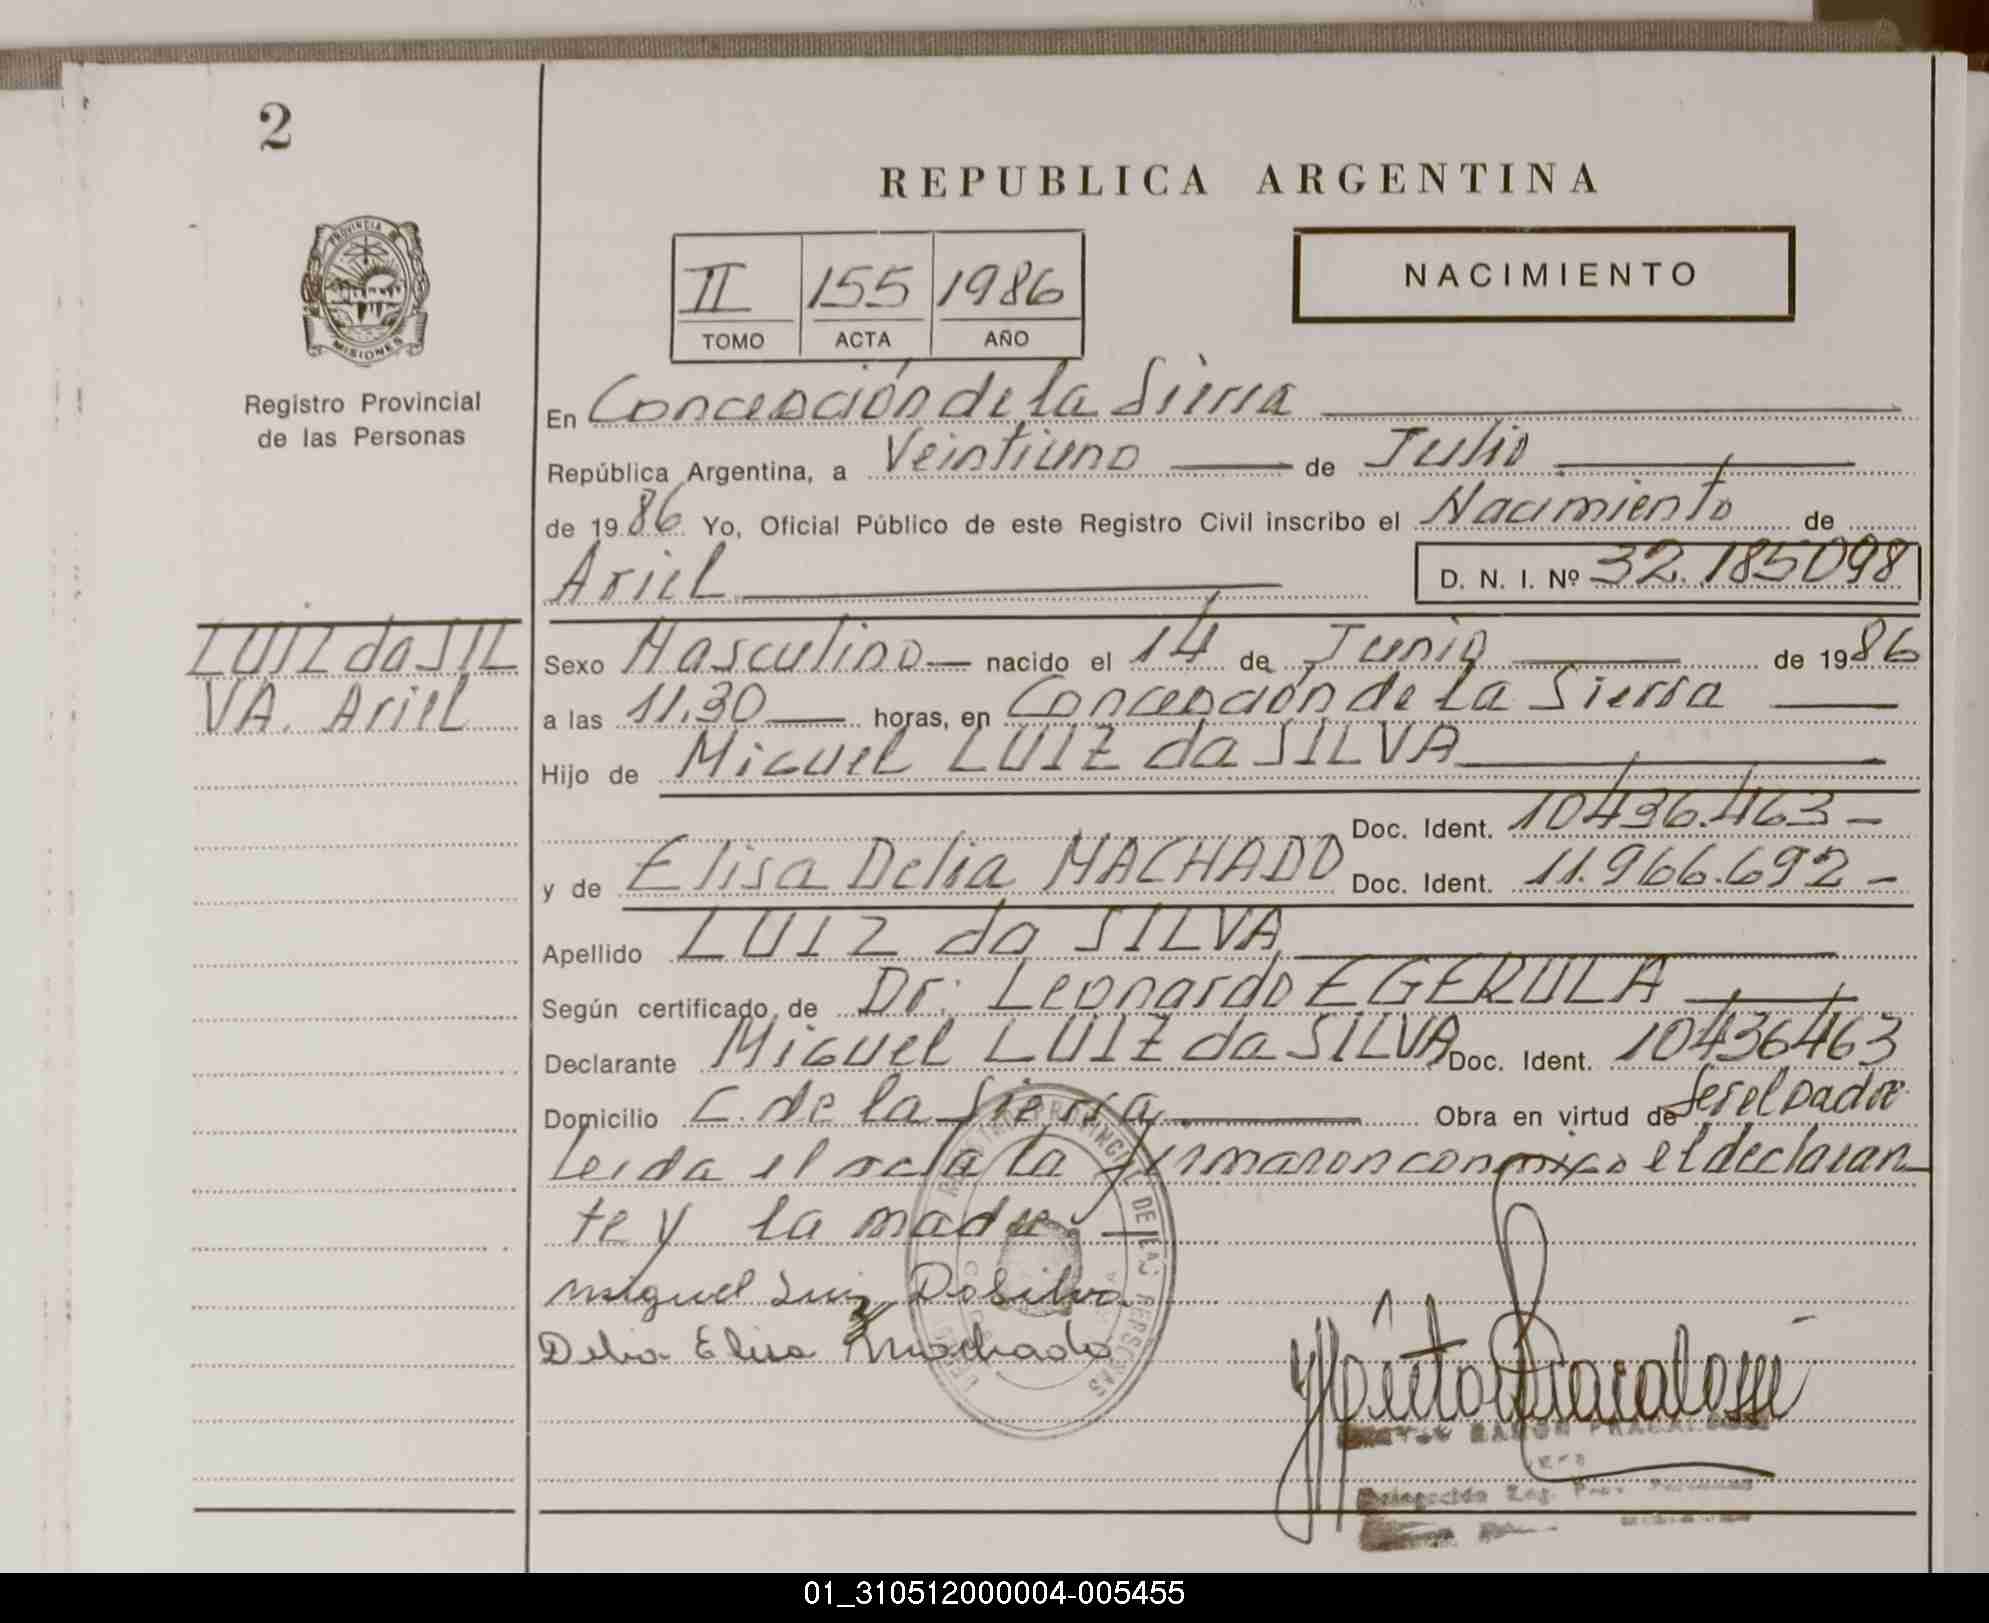 2
REPUBLICA ARGENTINA
PROVINCIA DE
MISIONES
NACIMIENTO
II 155 1986
TOMO ACTA AÑO
Registro Provincial
de las Personas
En Concepción de la Sierra
República Argentina, a Veintiuno de Julio
de 1986 Yo, Oficial Público de este Registro Civil inscribo el Nacimiento de
Ariel D. N. I. Nº 32.185098
LUIZ da SIL
VA. Ariel
Sexo Masculino nacido el 14 de Junio de 1986
a las 11,30 horas, en Concepción de La Sierra
Hijo de Miguel LUIZ da SILVA
Doc. Ident. 10436.463-
y de Elisa Delia MACHADO Doc. Ident. 11.966.692-
Apellido LUIZ da SILVA
Según certificado de Dr: Leonardo EGERULA
Declarante Miguel LUIZ da SILVA Doc. Ident. 10436463
Domicilio C. de la Sierra Obra en virtud de Ser el Padre
Leida el acta la firmaron conmigo el declaran
te y la madre.
Miguel Luiz DaSilva
Delia Elisa Machado
REGISTRO PROVINCIAL DE LAS PERSONAS
RAMON
01_310512000004-005455